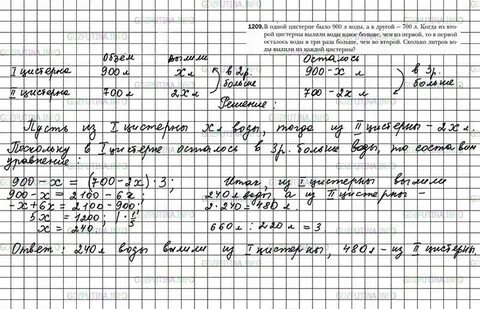 1209. В одной цистерне было 900 л воды, а в другой — 700 л. Когда из вто-
рой цистерны вылили воды вдвое больше, чем из первой, то в первой
осталось воды в три раза больше, чем во второй. Сколько литров во-
ды вылили из каждой цистерны?
Объем вылили Осталось
I цистерна 900 л x л в 2 р. больше 900 - x л в 3 р. больше
II цистерна 700 л 2x л 700 - 2x л
Решение:
Пусть из I цистерны x л воды, тогда из II цистерны - 2x л.
Поскольку в I цистерне осталось в 3 р. больше воды, то составим
уравнение:
900 - x = (700 - 2x) · 3;
900 - x = 2100 - 6x;
-x + 6x = 2100 - 900;
5x = 1200; | · 1/5
x = 240.
Итак, из I цистерны вылили
240 л воды а из II цистерны -
2 · 240 = 480 л.
660 л : 220 л = 3
Ответ: 240 л воды вылили из I цистерны, 480 л - из II цистерны
GDZPUTINA.INFO